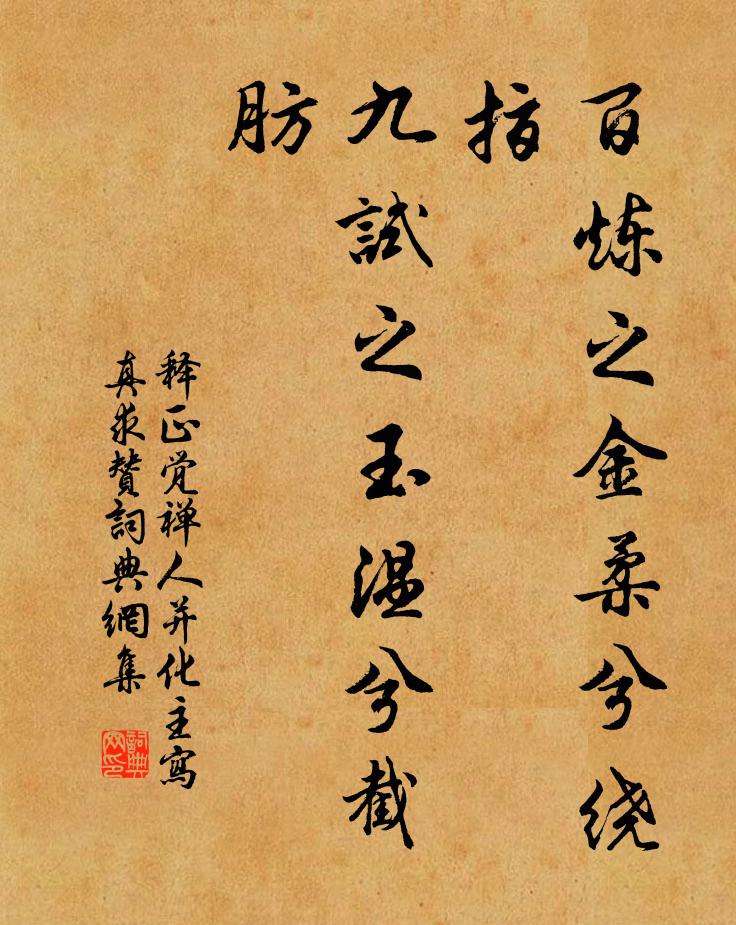 百炼之金柔兮绕
指
九試之玉温兮截
肪
释正觉禅人并化主寫
真求贊詞典網集
詞典
网印